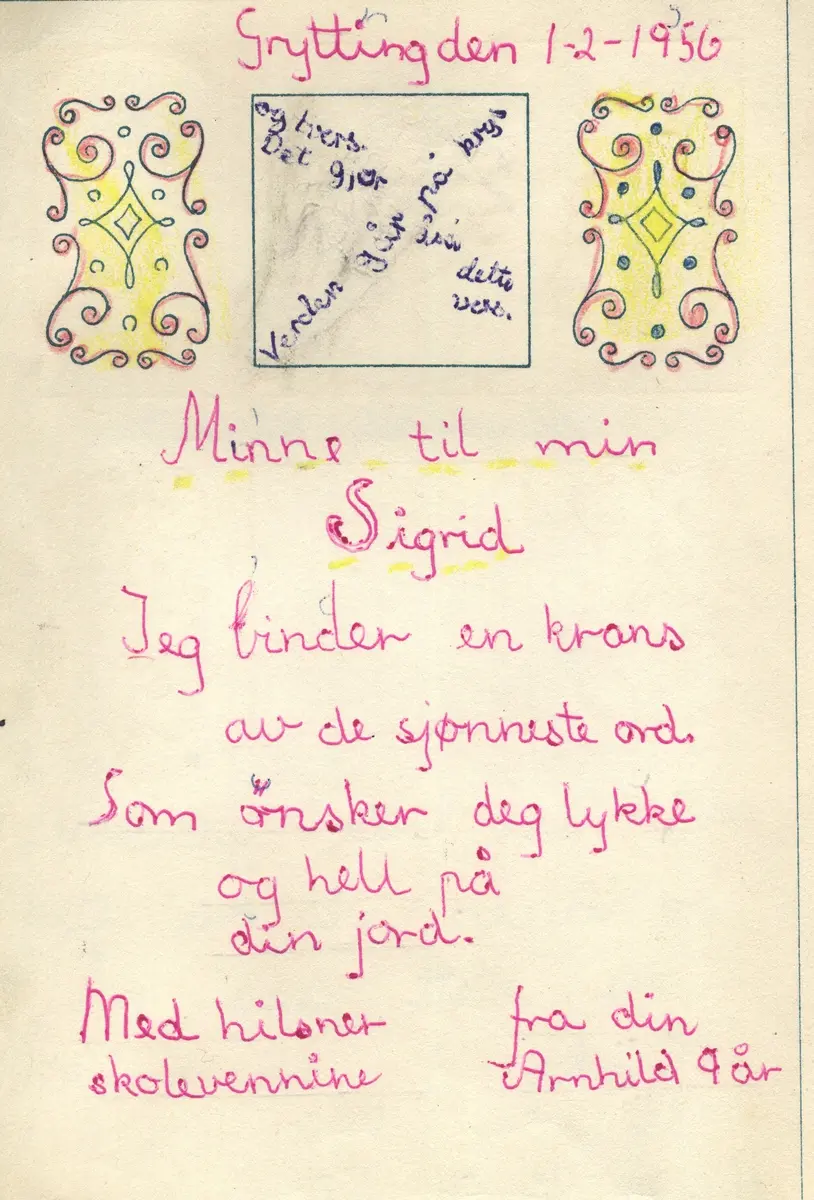 Grytting den 1-2-1956
Verden går på krys
og tvers.
Det gjør
dette
vers.
Minne til min
Sigrid
Jeg binder en krans
av de sjønneste ord.
Som önsker deg lykke
og hell på
din jord.
Med hilsner fra din
skolevennine Arnhild 9 år